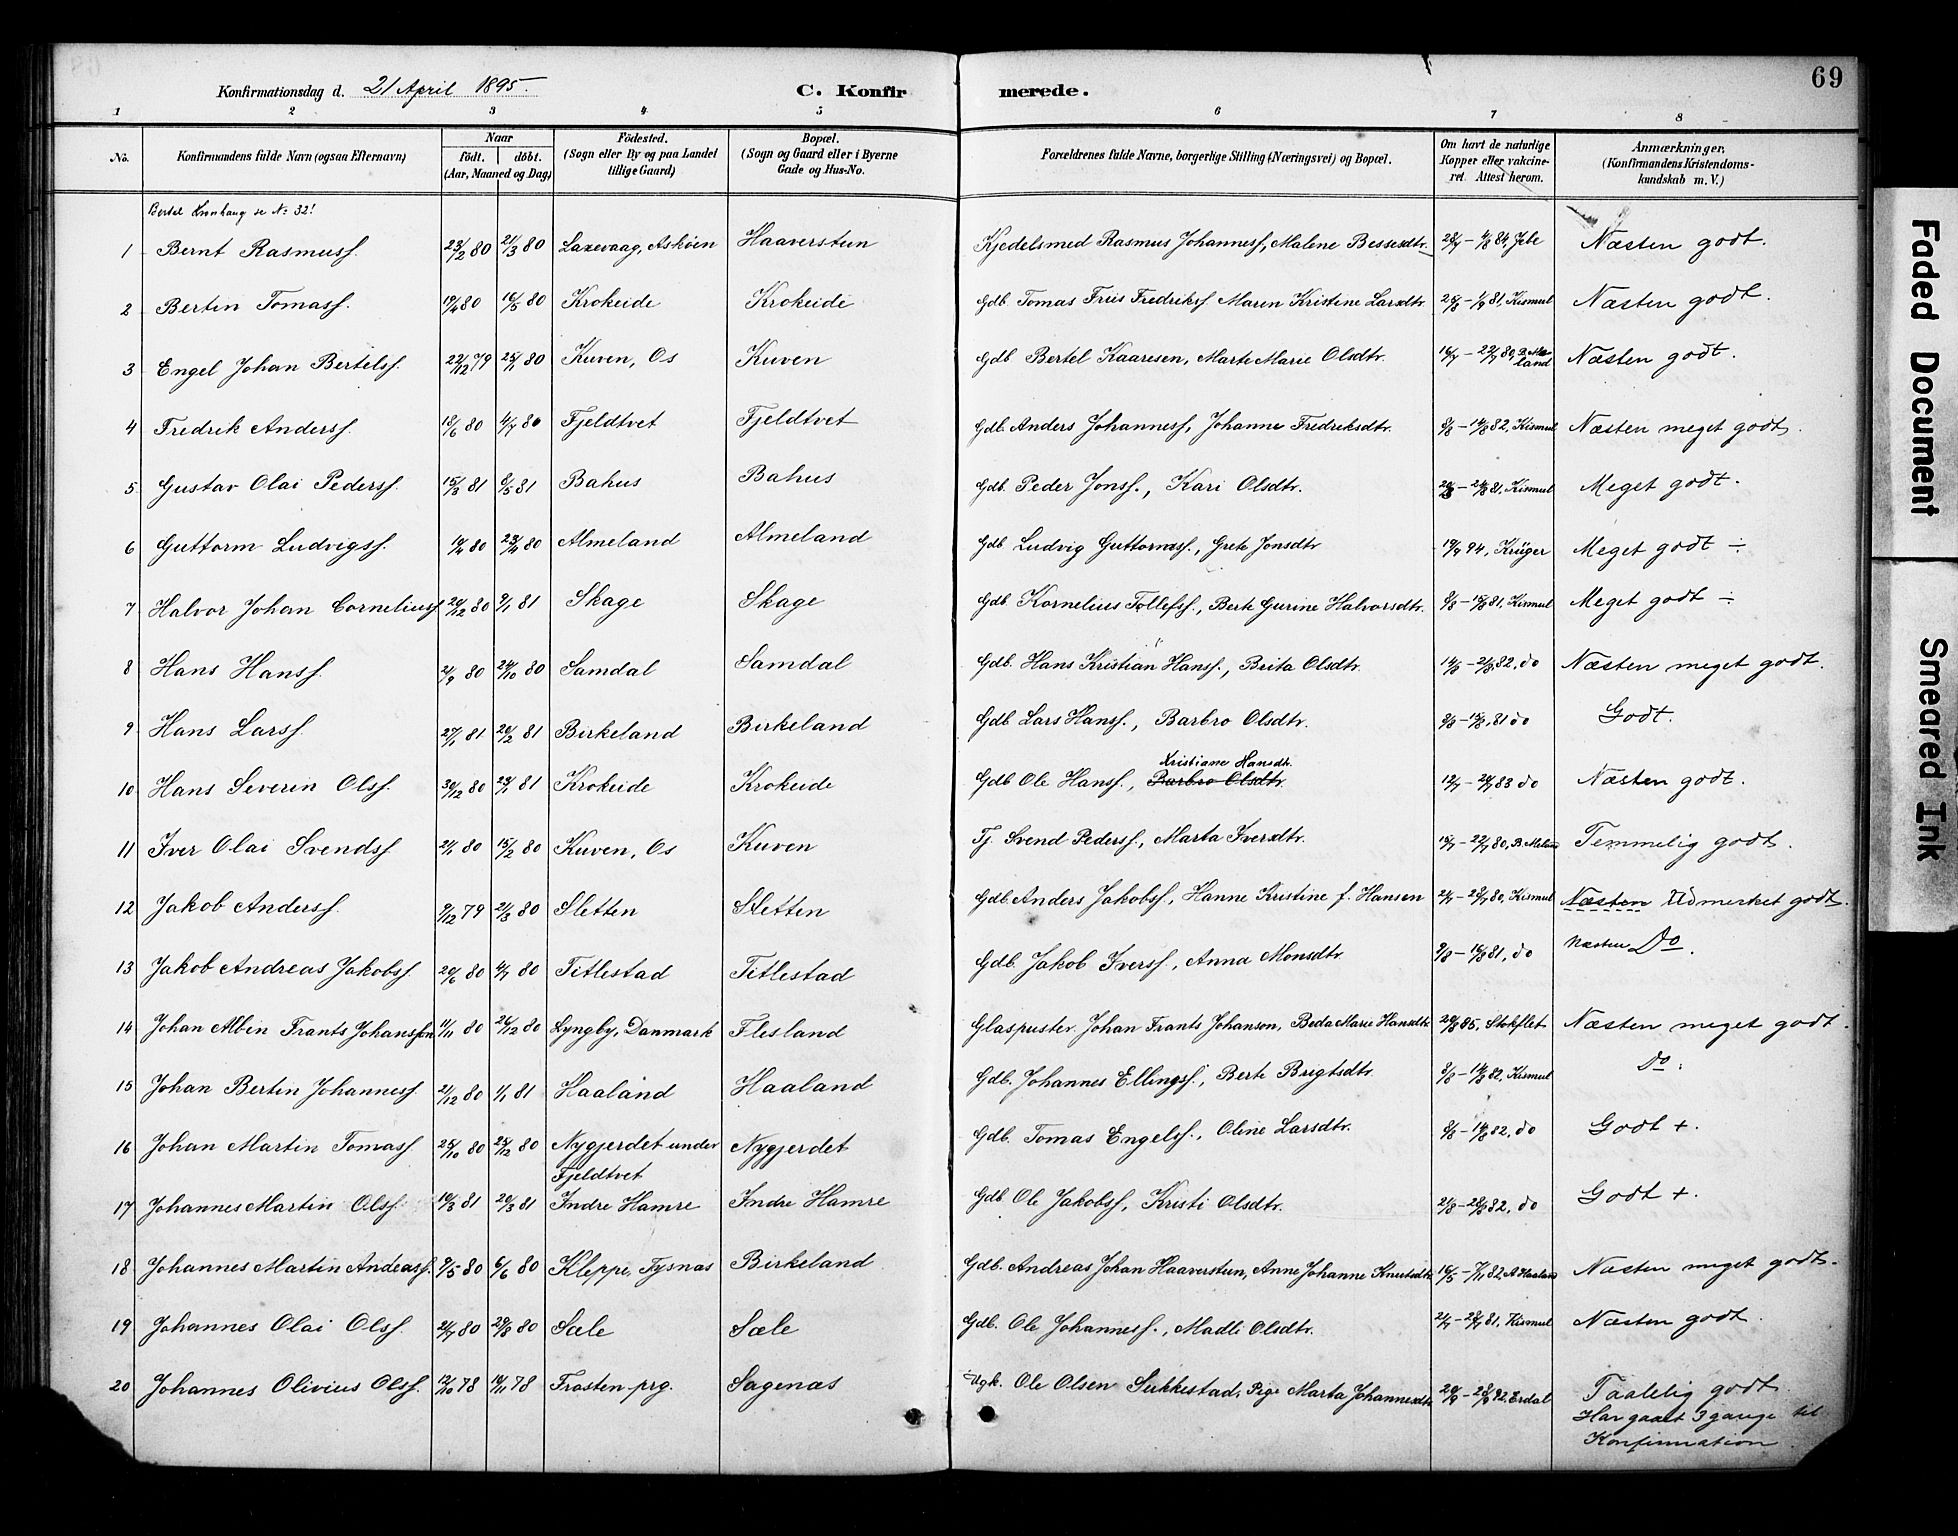 69
Konfirmationsdag d. 21 April 1895.
C. Konfirmerede.
1 2 3 4 5 6 7 8
No.
Konfirmandens fulde Navn (ogsaa Efternavn)
Naar
födt. döbt.
(Aar, Maaned og Dag)
Födested.
(Sogn eller By og paa Landet
tillige Gaard)
Bopæl.
(Sogn og Gaard eller i Byerne
Gade og Hus-No.
Forældrenes fulde Navne, borgerlige Stilling (Næringsvei) og Bopæl.
Om havt de naturlige
Kopper eller vakcine-
ret. Attest herom.
Anmærkninger.
(Konfirmandens Kristendoms-
kundskab m. V.)
Bertel se No 32!
1 Bernt Rasmuss. 23/2 80 21/3 80 Laxevaag, Asköen Haaverstun Kjedelsmed Rasmus Johanness., Malene Bessesdtr. Næsten godt.
2 Bertin Tomass. 19/4 80 16/5 80 Krokeide Krokeide Gdb. Tomas Friis Fredrikss. Maren Kristine Larsdtr. 81, Kismul Næsten godt.
3 Engel Johan Bertelss. 22/12 79 25/1 80 Kuven, Os Kuven Gdb Bertel Kaaresen, Marte Marie Olsdtr. Næsten godt.
4 Fredrik Anderss. 18/6 80 4/7 80 Fjeldtvet Fjeldtvet Gdb. Anders Johanness., Johanne Fredriksdtr. 9/8 - 14/8 82, Kismul Næsten meget godt.
5 Gustav Olai Pederss. 15/3 81 8/5 81 Bahus Bahus Gdb. Peder Jonss., Kari Olsdtr. 81, Kismul Meget godt.
6 Guttorm Ludvigss. 80 80 Almeland Almeland Gdb. Ludvig Guttormss., Grete Jonsdtr 94, Krüger Meget godt ÷
7 Halvor Johan Corneliuss. 80 9/1 81 Skage Skage Gdb. Kornelius Tollefss., Berte Gurine Halvorsdtr. 81, Kismul Meget godt ÷
8 Hans Hanss. 80 24/10 80 Samdal Samdal Gdb. Hans Kristian Hanss., Brita Olsdtr. 82, do Næsten meget godt.
9 Hans Larss. 27/1 81 20/2 81 Birkeland Birkeland Gdb. Lars Hanss., Barbro Olsdtr. 81 do Godt.
Kristiane Hansdtr.
10 Hans Severin Olss. 30/12 80 23/1 81 Krokeide Krokeide Gdb. Ole Hanss., Barbro Olsdtr. 83 do Næsten godt.
11 Iver Olai Svendss. 21/1 80 15/2 80 Kuven, Os Kuven Tj. Svend Pederss., Marta Iversdtr. Temmelig godt.
12 Jakob Anderss. 9/12 79 21/3 80 Sletten Sletten Gdb. Anders Jakobss., Hanne Kristine f. Hansen 80, Kismul Næsten Udmerket godt.
13 Jakob Andreas Jakobss. 20/6 80 4/7 80 Titlestad Titlestad Gdb. Jakob Iverss., Anna Monsdtr. 81, do Næsten Do.
14 Johan Albin Frants Johanssen 11/11 80 26/12 80 Lyngby, Danmark Flesland Glaspuster. Johan Frants Johanson, Beda Marie Hansdtr 85, Stokflet Næsten meget godt.
15 Johan Bertin Johanness. 21/12 80 1/1 81 Haaland Haaland Gdb. Johannes Ellingss., Berte Brigtsdtr. 82, Kismul Do.
16 Johan Martin Tomass. 25/10 80 80 Nygjerdet under Nygjerdet Gdb. Tomas Engelss., Oline Larsdtr. 82, do Godt +.
Fjeldtvet
17 Johannes Martin Olss. 10/3 81 20/3 81 Indre Hamre Indre Hamre Gdb. Ole Jakobss., Kristi Olsdtr. 82, do Godt +.
18 Johannes Martin Andreass. 9/5 80 6/6 80 Kleppe, Tysnæs Birkeland Gdb. Andreas Johan Haaverstun, Anne Johanne Knutsdtr 16/5 - 7/11 82, A Haaland Næsten meget godt.
19 Johannes Olai Olss. 80 29/8 80 Sæle Sæle Gdb. Ole Johanness., Madli Olsdtr. 81, Kismul Næsten godt.
20 Johannes Olivius Olss. 12/10 78 78 Frosten prg. Sagenæs Ugk. Ole Olsen Sukkestad, Pige Marta Johannesdtr 92, Erdal Taalelig godt.
Har gaaet 3 gange til
Konfirmation.
Faded Document
Smeared Ink